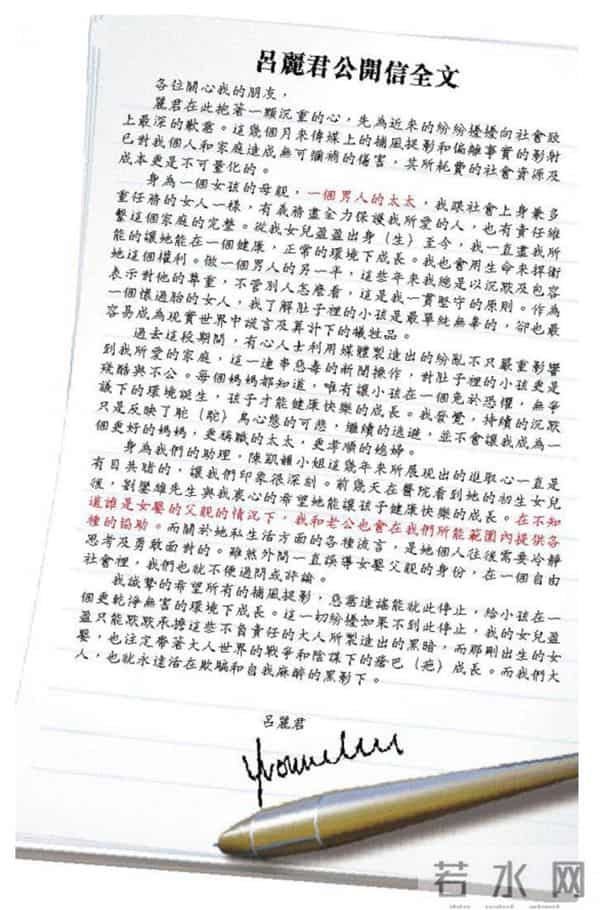 呂麗君公開信全文
各位關心我的朋友,
麗君在此抱著一顆沉重的心,先為近來的紛紛擾擾向社會致
上最深的歉意。這幾個月來傳媒上的捕風捉影和偏離事實的影射
已對我個人和家庭造成無可彌補的傷害,其所耗費的社會資源及
成本更是不可量化的。
身為一個女孩的母親,一個男人的太太,我跟社會上身兼多
重任務的女人一樣,有義務盡全力保護我所愛的人,也有責任維
繫這個家庭的完整。從我女兒盈盈出身(生)至今,我一直盡我所
能的讓她能在一個健康,正常的環境下成長。我也會用生命來捍衛
她這個權利。做一個男人的另一半,這些年來我總是以沉默及包容
表示對他的尊重,不管別人怎麼看,這是我一貫堅守的原則。作為
一個懷過胎的女人,我了解肚子裡的小孩是最單純無辜的,卻也最
容易成為現實世界中謊言及算計下的犧牲品。
過去這段期間,有心人士利用媒體製造出的紛亂不只嚴重影響
到我所愛的家庭,這一連串惡毒的新聞操作,對肚子裡的小孩更是
殘酷與不公。每個媽媽都知道,唯有讓小孩在一個免於恐懼,無爭
議下的環境誕生,孩子才能健康快樂的成長。我發覺,持續的沉默
只是反映了鴕(駝)鳥心態的可悲,繼續的逃避,並不會讓我成為一
個更好的媽媽,更稱職的太太,更孝順的媳婦。
身為我們的助理,陳凱韻小姐這幾年來所展現出的進取心一直是
有目共睹的,讓我們印象很深刻。前幾天在醫院看到她的初生女兒
後,劉鑾雄先生與我衷心的希望她能讓孩子健康快樂的成長。在不知
道誰是女嬰的父親的情況下,我和老公也會在我們所能範圍內提供各
種的協助。而關於她私生活方面的各種流言,是她個人往後需要冷靜
思考及勇敢面對的。雖然外間一直誤導女嬰父親的身份,在一個自由
社會裡,我們也就不便過問或評論。
我誠摯的希望所有的捕風捉影,惡意造謠能就此停止,給小孩在一
個更乾淨無害的環境下成長。這一切紛擾如果不到此停止,我的女兒盈
盈只能默默承擔這些不負責任的大人所製造出的黑暗,而那剛出生的女
嬰,也注定帶著大人世界的戰爭和陰謀下的瘡巴(疤)成長。而我們大
人,也就永遠活在欺騙和自我麻醉的黑影下。
呂麗君
若水网